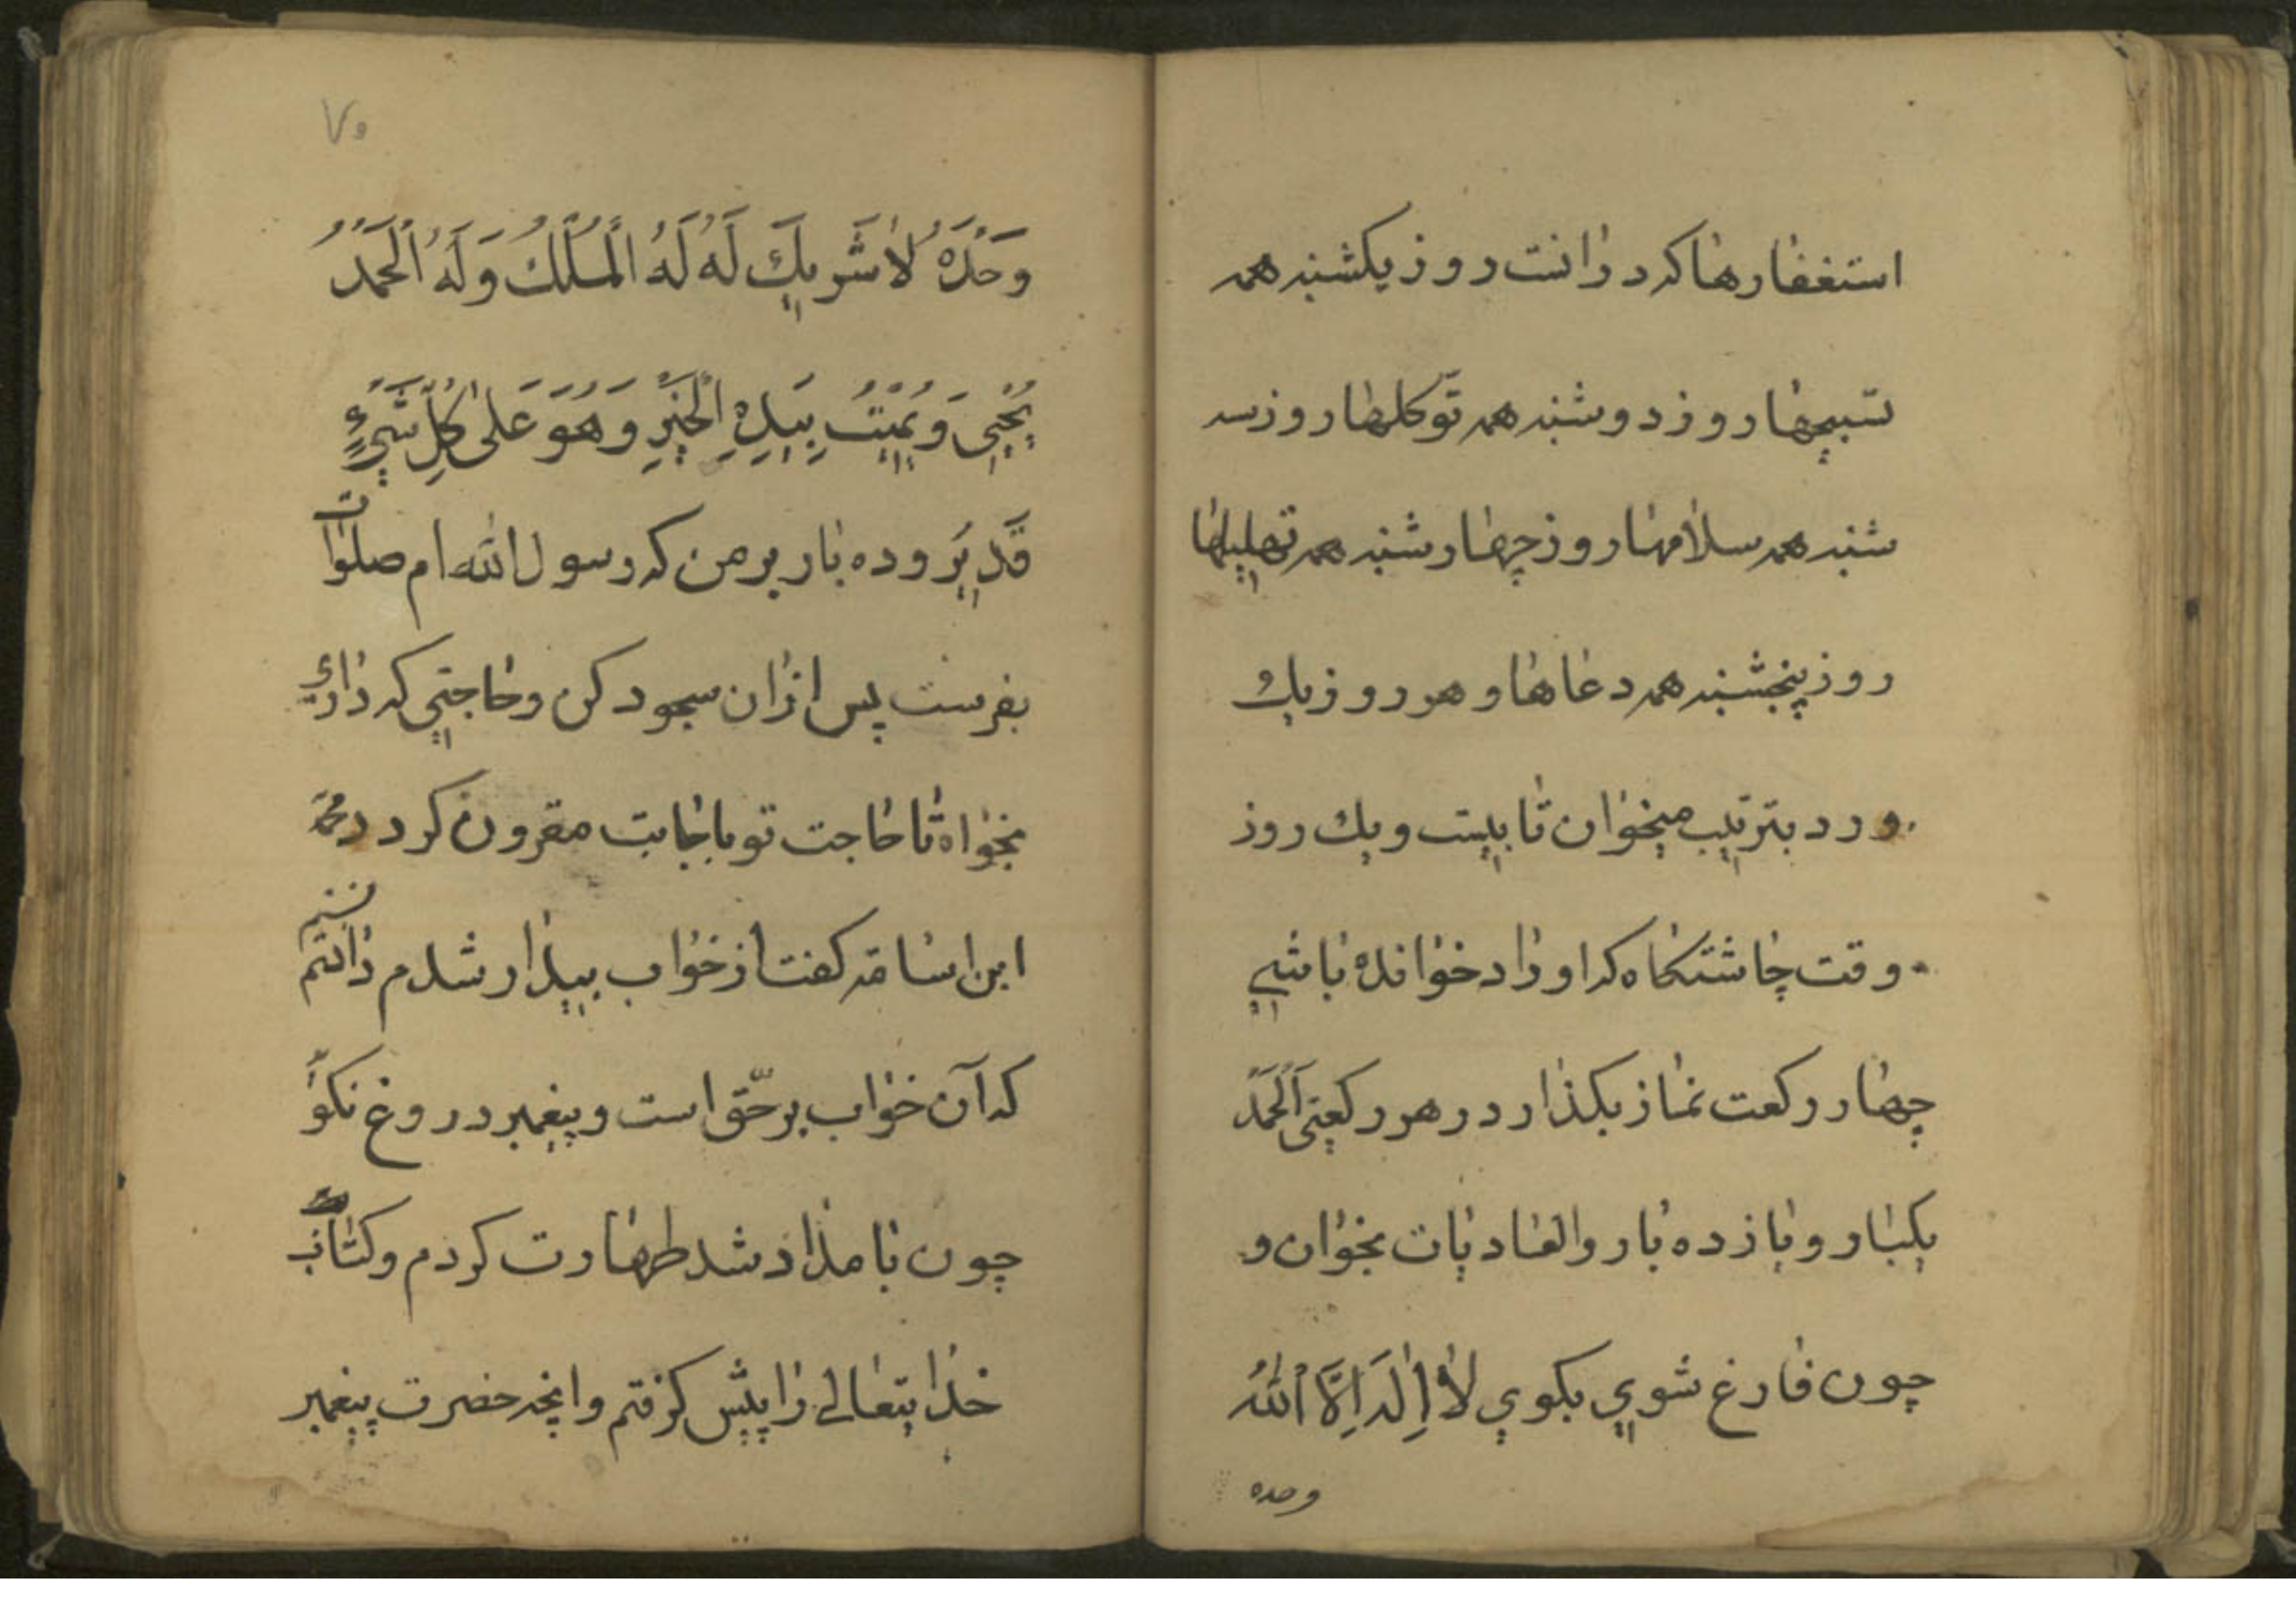 استغفارها که در انست روز یکشنبه همه
تسبیحها روز دوشنبه همه توّکلها روز سه
شنبه همه سلامها روز چهار شنبه همه تهلیلها
روز پنجشنبه همه دعاها و هر روز یك
ورد بترتیب میخوان تا بیست و یك روز
وقت چاشتکاه که اوراد خوانده باشی
چهار رکعت نماز بکذار در هر رکعتی اَلْحَمْدُ
یکبار و یازده بار والعادیات بخوان و
چون فارغ شوی بکوی لٰا اِلٰهَ اِلَّا اللّٰهُ
وحده
۷۰
وَحْدَهُ لٰا شَریكَ لَهُ لَهُ الْمُلْكُ وَلَهُ الْحَمْدُ
یُحْیِی وَ یُمیْتُ بِیَدِهِ الْخَیْرِ وَ هُوَ عَلٰی کُلِّ شَیْءٍ
قَدیٖرْ و ده بار بر من که رسول الله ام صلوات
بفرست پس از ان سجود کن و حاجتی که داری
بخواه تا حاجت تو باجابت مقرون کردد محمّد
ابن اسامه کفت از خواب بیدار شدم دانستم
که آن خواب برحّق است و پیغمبر دروغ نکوْ
چون بامداد شد طهارت کردم و کتاب
خدایتعالی را پیش کرفتم و انچه حضرت پیغمبر